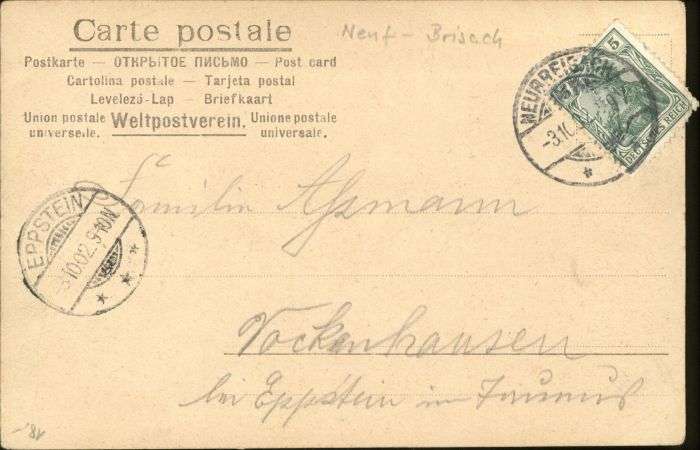 Carte postale
Neuf-Brisach
Postkarte — ОТКРЫТОЕ ПИСЬМО — Post card
Cartolina postale — Tarjeta postal
Levelezö-Lap — Briefkaart
Union postale universelle. Weltpostverein. Unione postale universale.
NEUBREISACH
-3.10.
5
DEUTSCHES REICH
Familie Assmann
EPPSTEIN
3.10.02.9-10N
Vockenhausen
bei Eppstein im Taunus